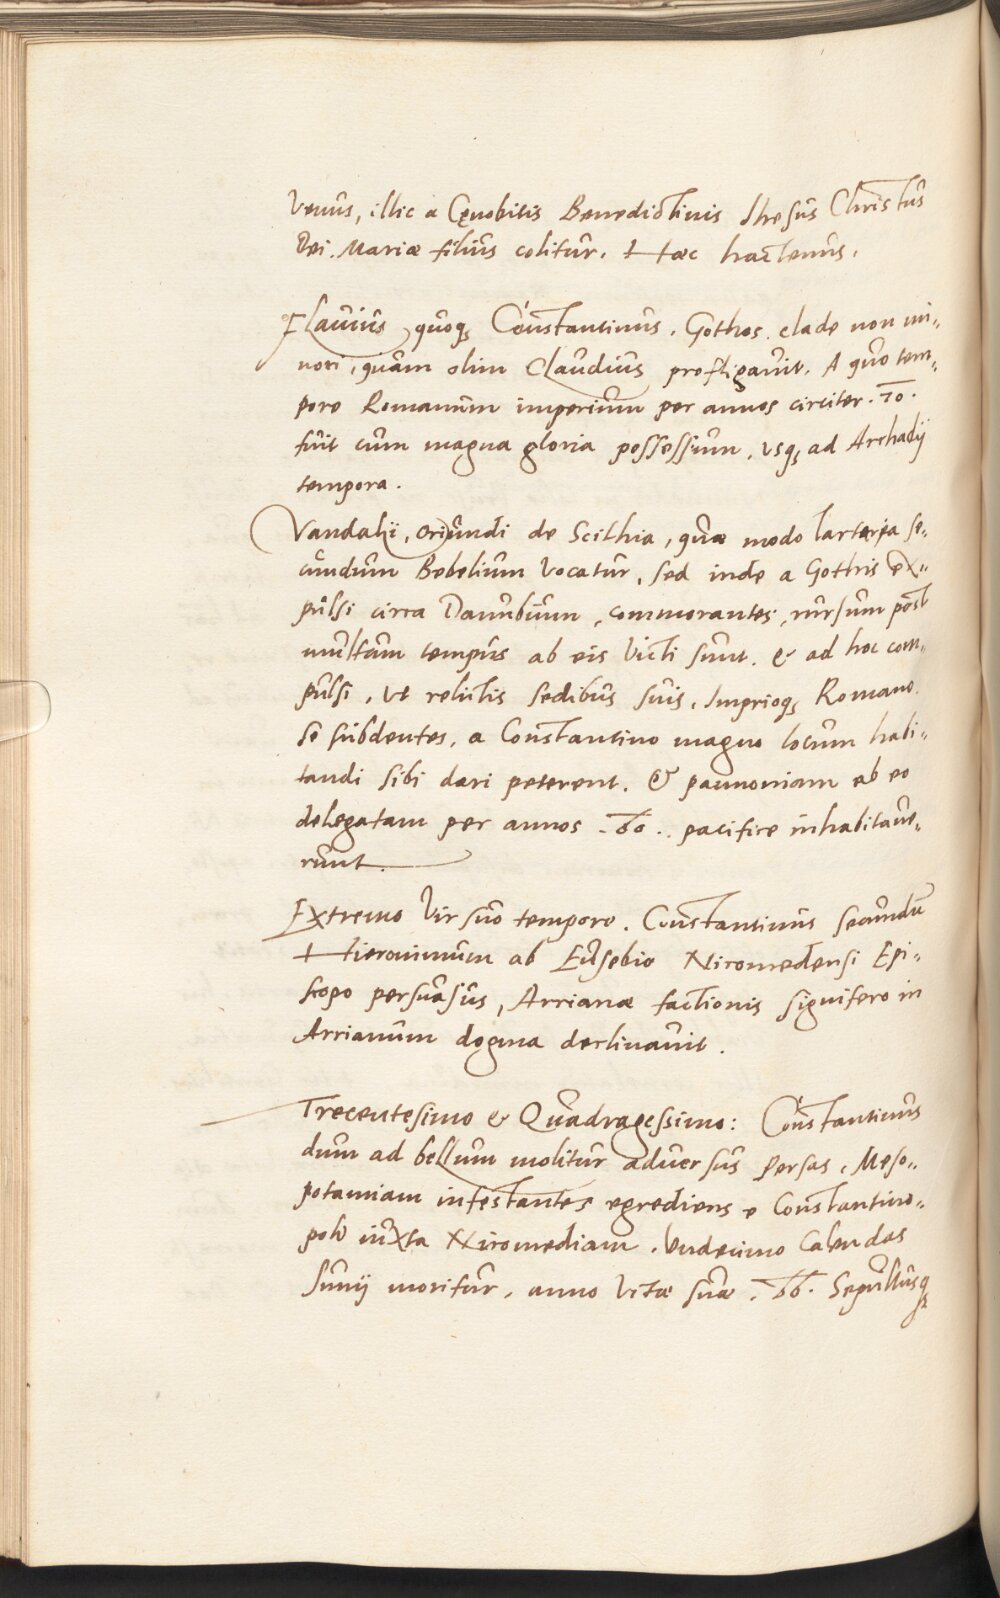 Venus, illic a Cęnobitis Benedictinis Ihesus Christus
Dei. Mariæ filius colitur. Hæc hactenus.
Flavius quoqȝ Constantinus. Gothos. clade non mi„
nori, quam olim Claudius profligavit. A quo tem„
pore Romanum imperium per annos circiter. 70.
fuit cum magna gloria possessum, usqȝ ad Archadij
tempora.
Vandalij, oriundi de Scithia, quæ modo Tartaria se„
cundum Bebelium Vocatur, sed inde a Gothis ex„
pulsi circa Danubium, commorantes, rursum post
multum tempus ab eis Victi sunt. & ad hoc com„
pulsi, ut relictis sedibus suis, Imprioqȝ Romano.
se subdentes, a Constantino magno locum habi„
tandi sibi dari peterent. & pannoniam ab eo
delegatam per annos .60.. pacifice inhabitave„
runt.
Extremo Vir suo tempore. Constantinus secundū
Hieronimum ab Eusebio Nicomedensi Epi„
scopo persuasus, Arrianæ factionis signifero in
Arrianum dogma declinavit.
Trecentesimo & Quadragessimo: Constantinus
dum ad bellum molitur adversus Persas, Meso„
potamiam infestantes egrediens e Constantino„
poli iuxta Nicomediam. Undecimo Calendas
Iunij moritur, anno Vitæ suæ .66. Sepultusqȝ